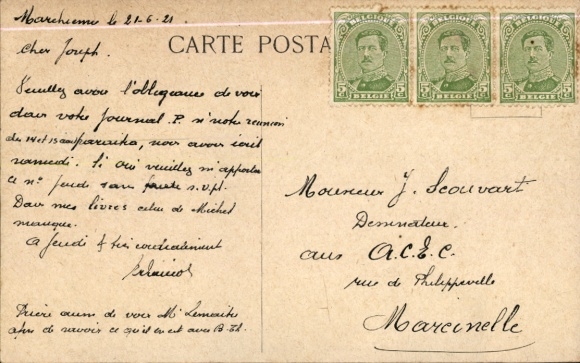 Marchienne le 21-6-21.
Cher Joseph.
CARTE POSTA
BELGIQUE BELGIQUE BELGIQUE
5c 5c 5c 5c 5c 5c
BELGIE BELGIE BELGIE
Veuillez avoir l'obligeance de voir
dans votre Journal P. si notre reunion
des 14 et 15 paraitra, nous avons
samedi. Si oui veuillez m'apporter
ce n° jeudi sans faute s.v.pl.
Dans mes livres celui de Michel
manque.
A jeudi & bien cordialement
Prière aussi de voir Mr Lemaitre
afin de savoir ce qu'il en est avec B.
Monsieur J. Scouvart
Dessinateur.
aux A.C.E.C.
rue de Philippeville
Marcinelle